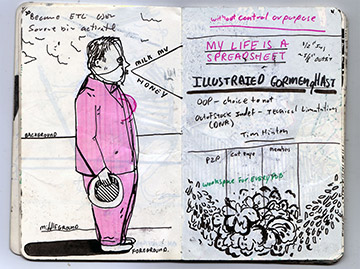 Become ETC User
MILK MY
HONEY
BACKGROUND
MIDDLEGROUND
FOREGROUND.
without control or purpose
MY LIFE IS A
SPREADSHEET
ILLUSTRATED GORMENGHAST
OOP - choice to not
Out of stock Indef - Technical Limitations
(DNA)
Tim Hinton
P2P
Cat Page
Members
workspace for